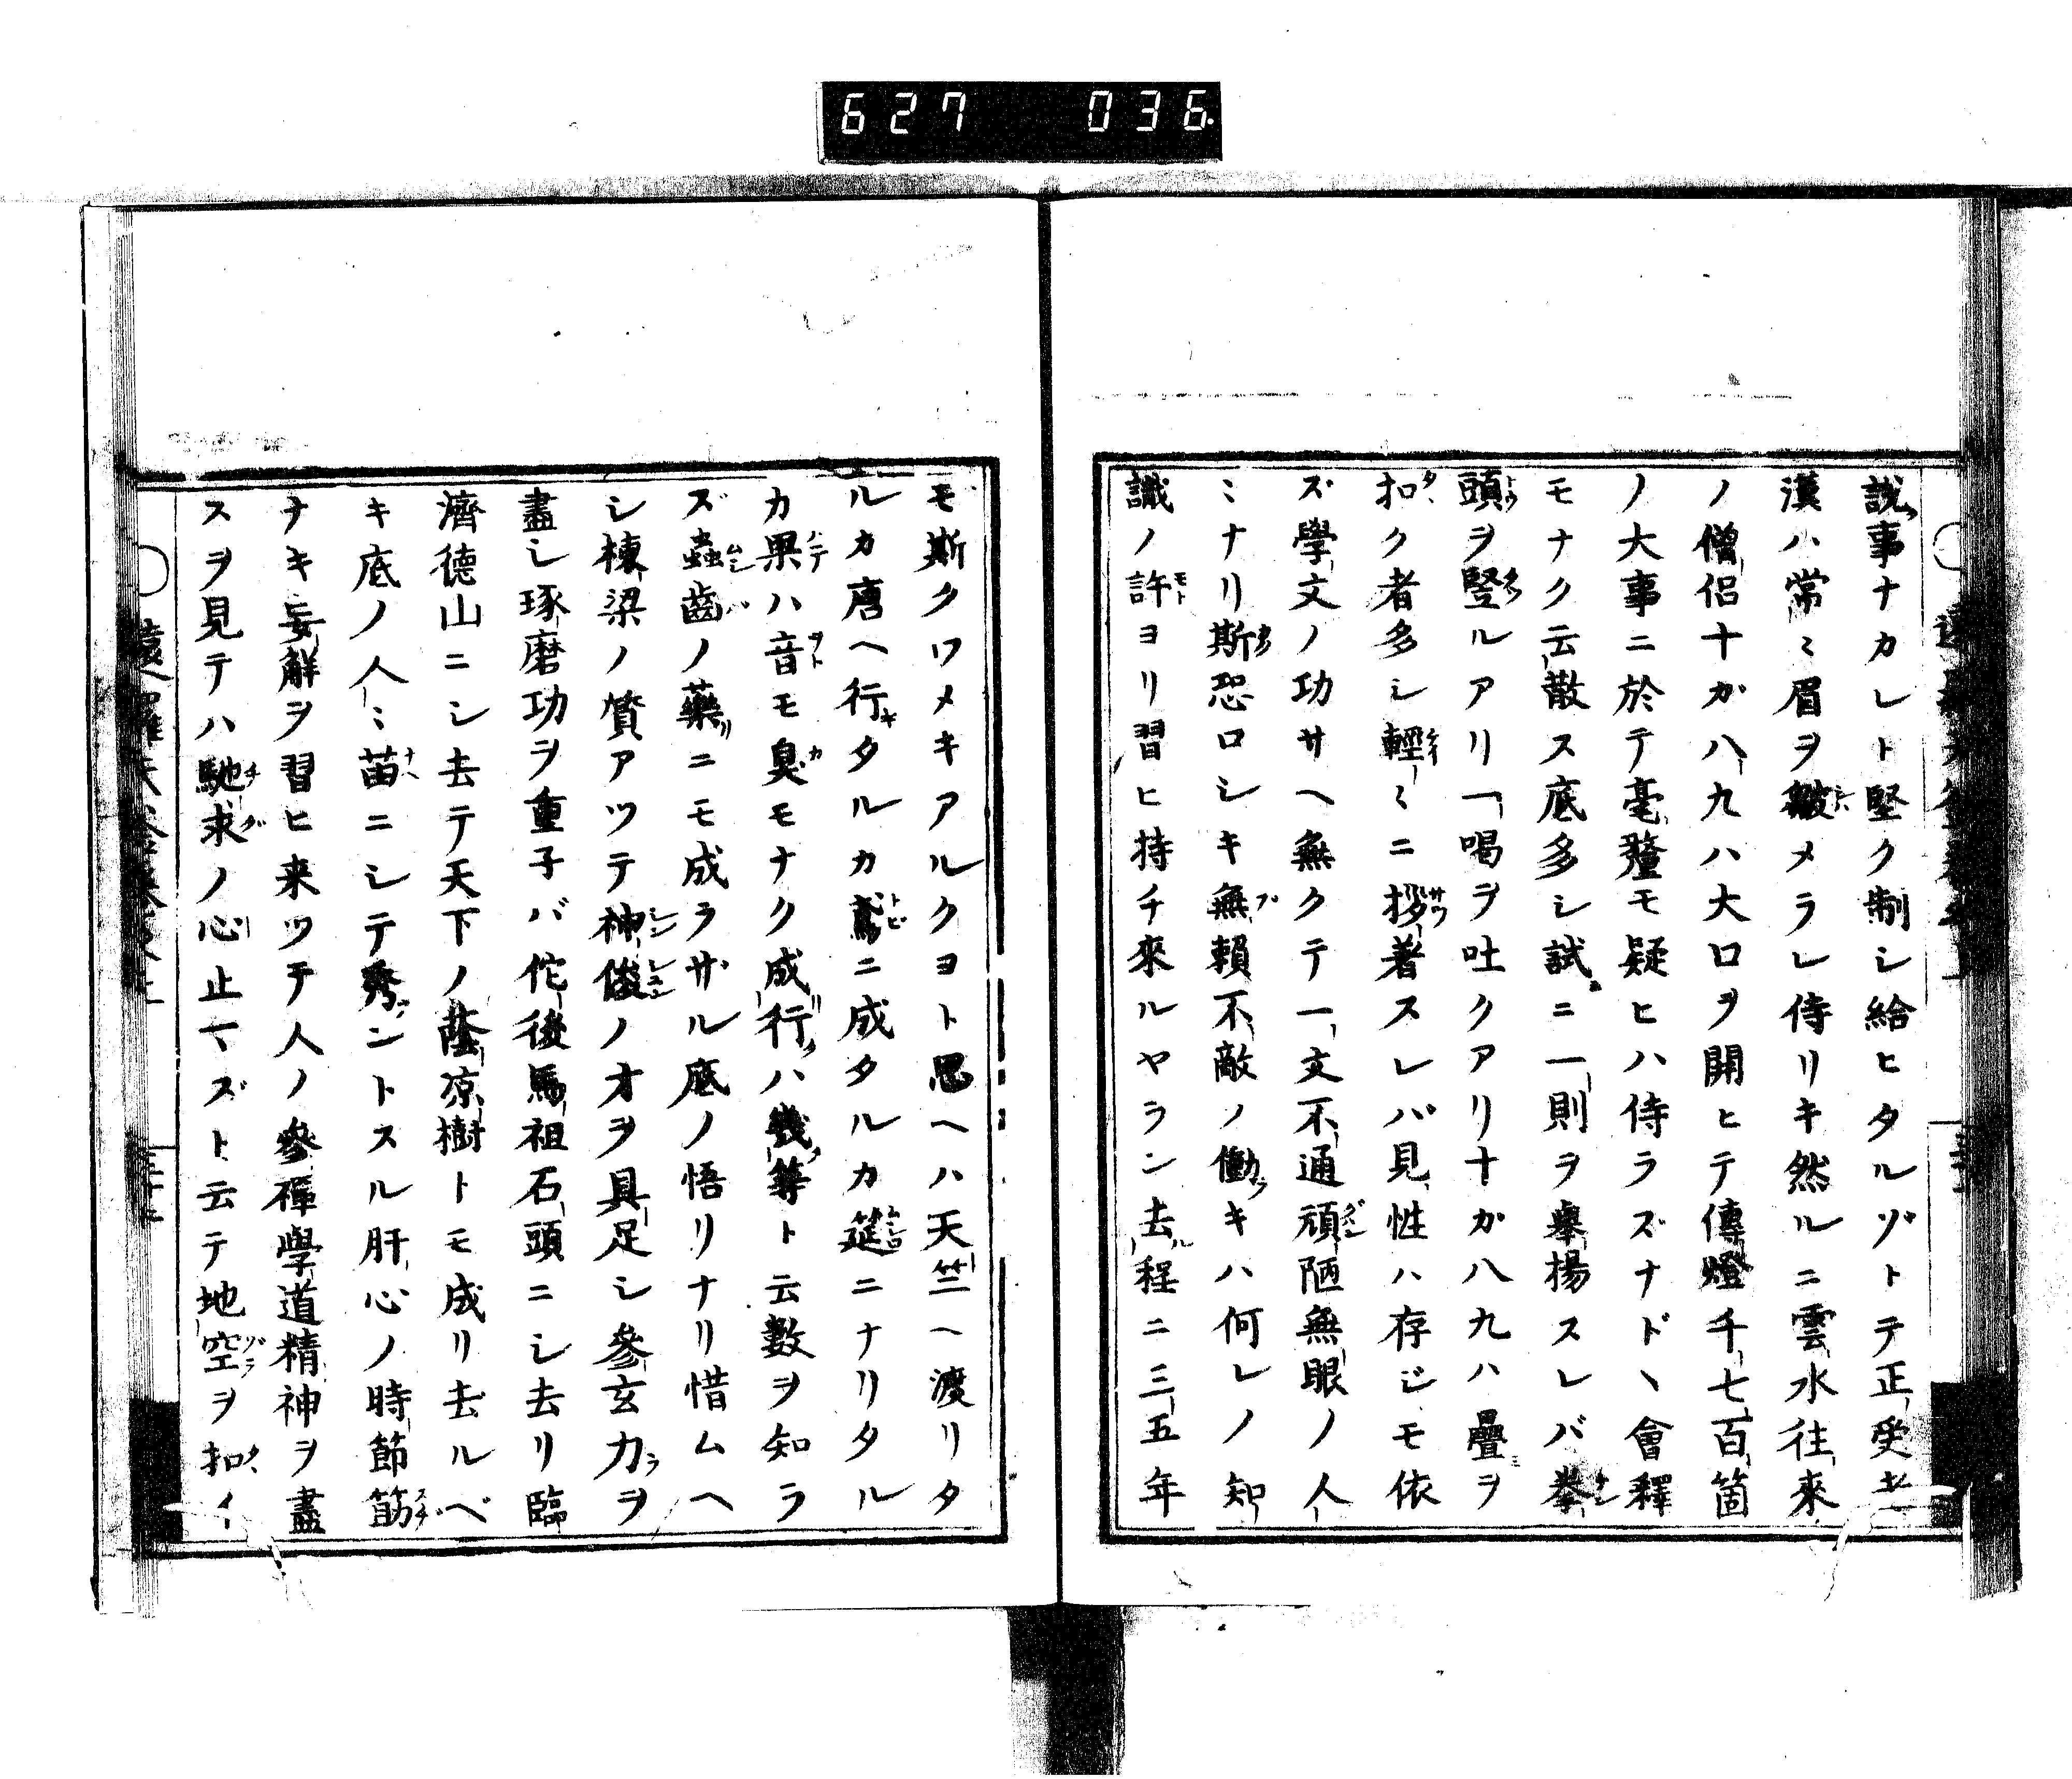 627 036
説事ナカレト堅ク制シ給ヒタルゾトテ正受老
漢ハ常ミ眉ヲ皺メラレ侍リキ然ルニ雲水往來
ノ僧侶十カ八九ハ大口ヲ開ヒテ傳燈千七百箇
ノ大事ニ於テ毫釐モ疑ヒハ侍ラズナド丶會釋
モナク云散ス底多シ試ニ一則ヲ擧揚スレバ拳
頭ヲ竪ルアリ一喝ヲ吐クアリ十カ八九ハ疊ヲ
扣ク者多シ輕〻ニ拶著スレバ見性ハ存ジモ依
ズ學文ノ功サヘ無クテ一文不通頑陋無眼ノ人
ミナリ斯恐ロシキ無賴不敵ノ働キハ何レノ知
識ノ許ヨリ習ヒ持チ來ルヤラン去程ニ三五年
モ斯クワメキアルクヨト思ヘハ天竺ヘ渡リタ
ルカ唐ヘ行タルカ鳶ニ成タルカ筵ニナリタル
カ果ハ音モ臭モナク成行ハ幾等ト云數ヲ知ラ
ズ蟲齒ノ藥ニモ成ラザル底ノ悟リナリ惜ムヘ
シ棟梁ノ質アツテ神俊ノオヲ具足シ參玄力ヲ
盡シ琢磨功ヲ重子バ佗後馬祖石頭ニシ去リ臨
濟德山ニシ去テ天下ノ蔭凉樹トモ成リ去ルベ
キ底ノ人ミ苗ニシテ秀ントスル肝心ノ時節筯
ナキ妄解ヲ習ヒ来ツテ人ノ參禪學道精神ヲ盡
スヲ見テハ馳求ノ心止マズト云テ地空ヲ扣イ